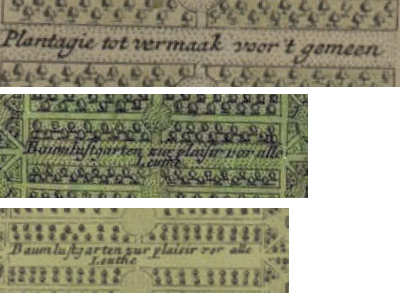 Plantagie tot vermaak voor 't gemeen
Baumlustgarten zur plaisir vor alle
Leuthe
Baumlustgarten zur plaisir vor alle
Leuthe